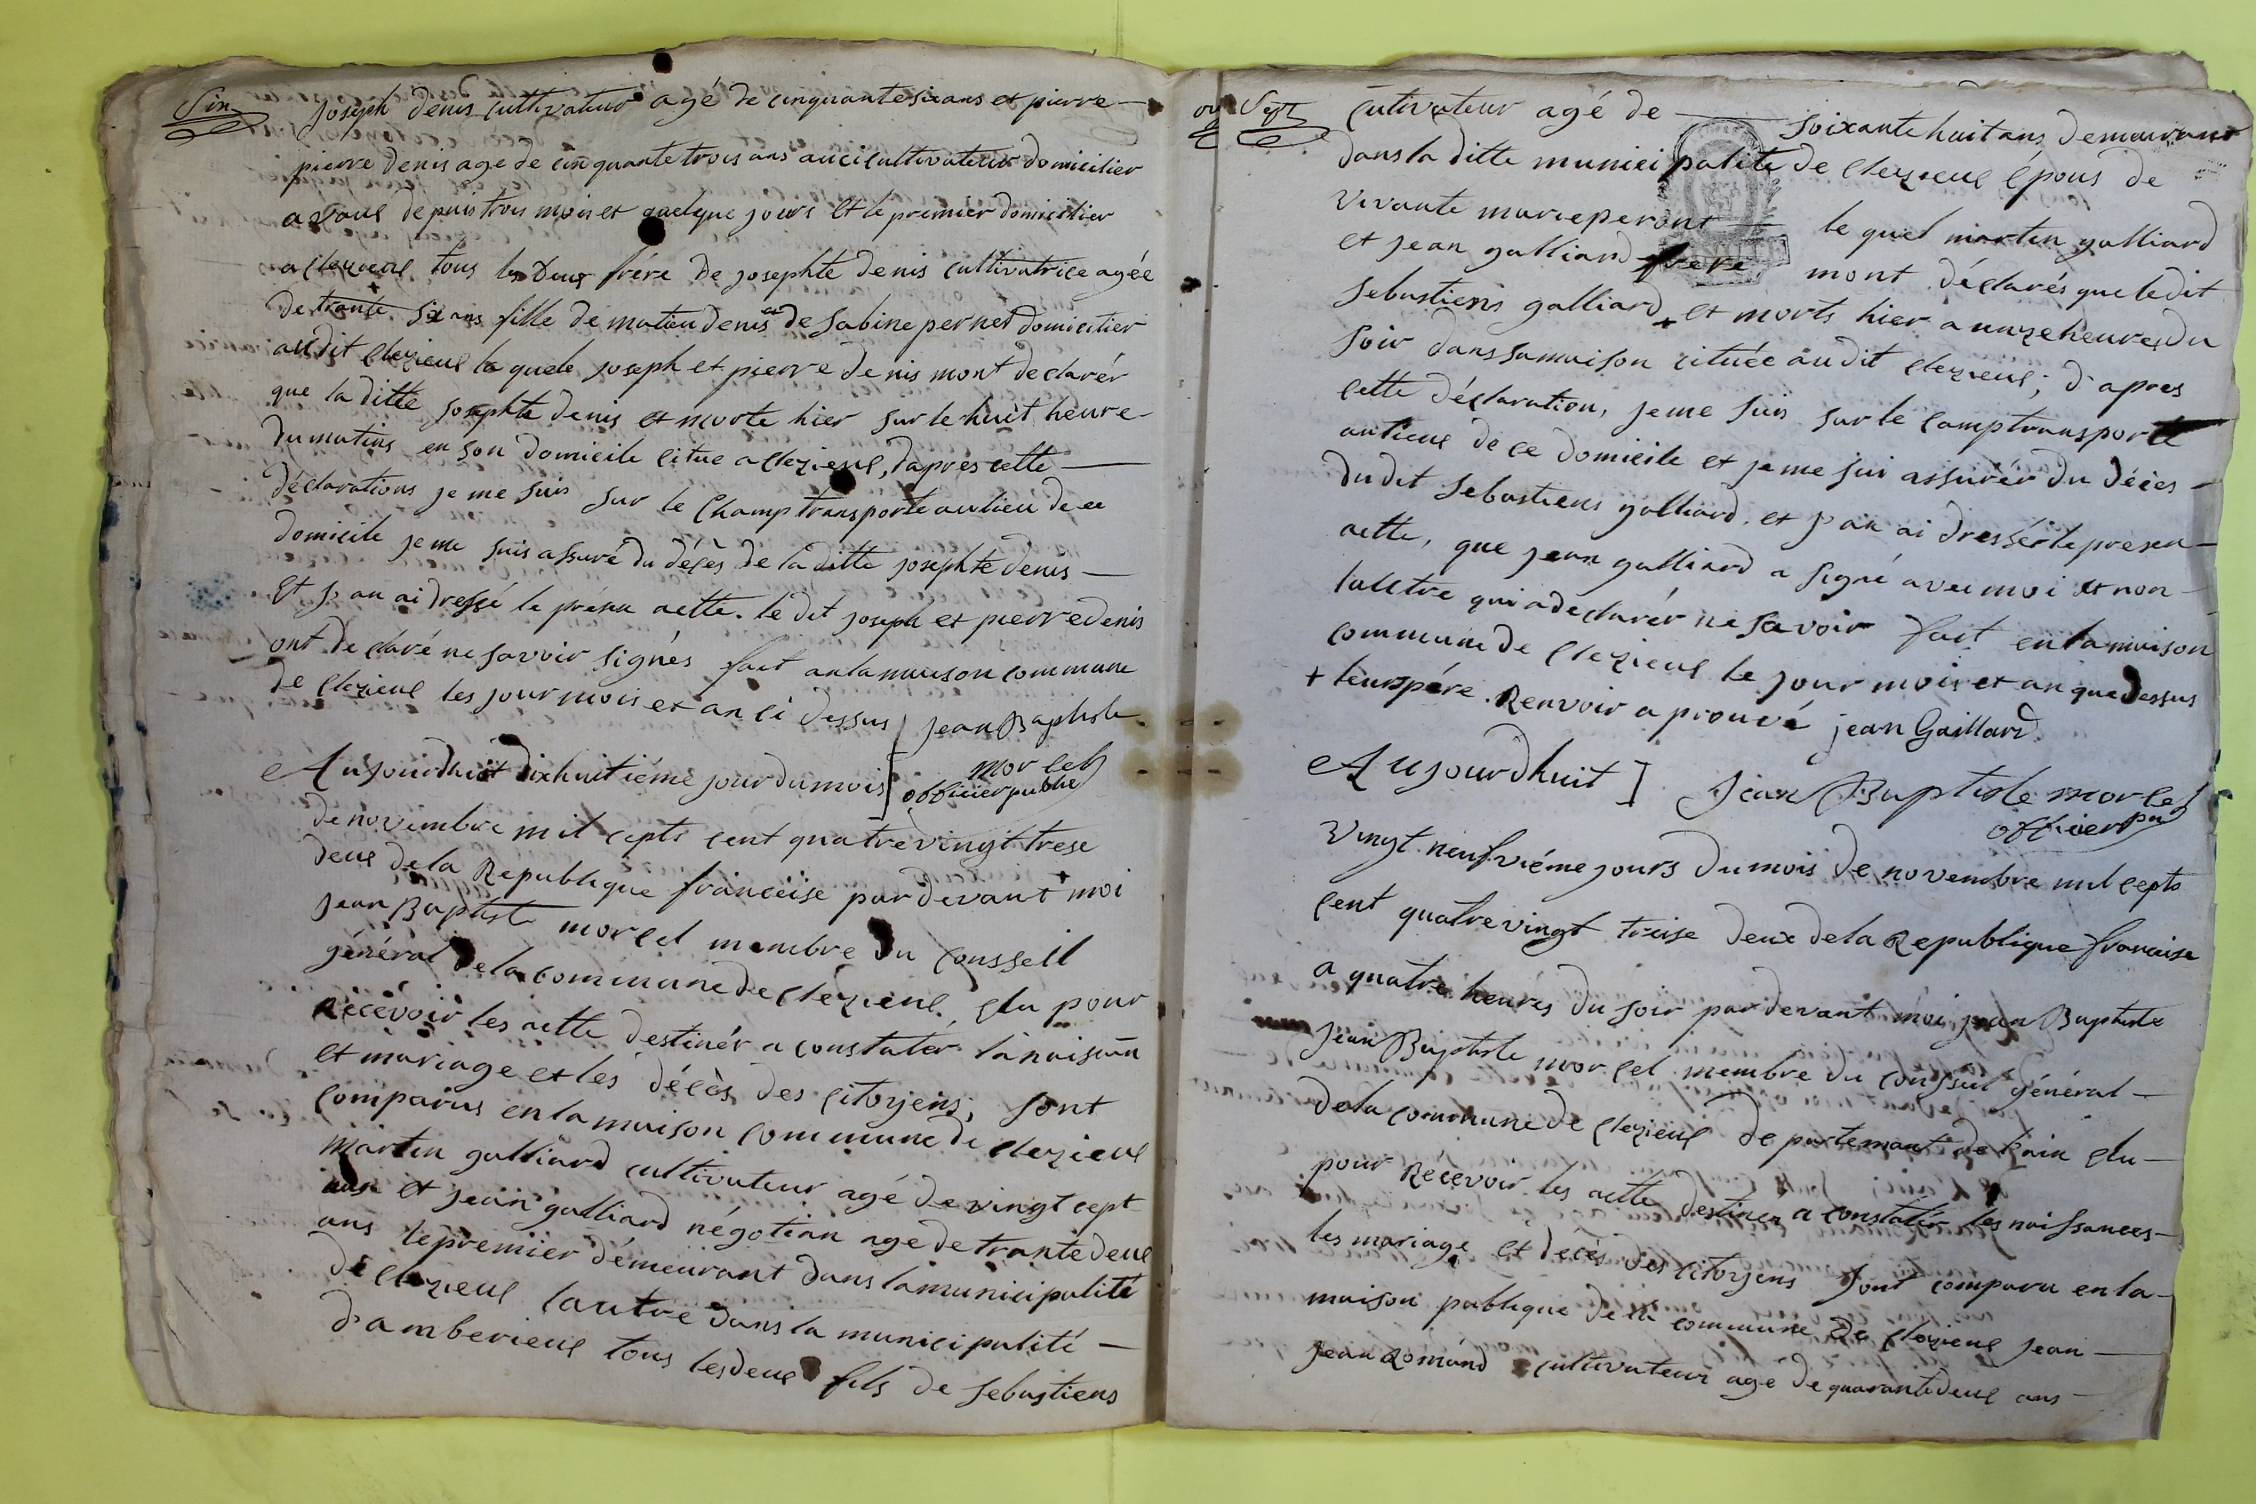 Six
Joseph denis cultivateur agé de cinquante six ans et pierre
pierre denis age de cinquante trois ans auci cultivateur domicilier
a vaus depuis trois mois et quelque jours et le premier domicilier
a cleyzieux tous les deux frére de josephte denis cultivatrice agée
de trante six ans fille de matieu denis et de Sabine pernet domicilier
audit cleyzieux la quele joseph et pierre denis mont declarér
que la ditte josephte denis et morte hier sur le huit heure
du matins en son domicile citue a cleyzieux, dapres cette
déclarations je me suis sur le Champ transporte au lieu de ce
domicile je me suis assuré du décès de la ditte josephte denis
et j'an ai dressé le présan actte. le dit joseph et pierre denis
ont declaré ne savoir signés fait an la maison commune
de cleyzieux les jour mois et an ci dessus jean Baptiste
morcel
officier publié
Aujourdhuit dixhuitiéme jour du mois
de novembre mil cepts cent quatre vingt trese
deux de la Republique francèise par devant moi
jean Baptiste morcel membre du Conseil
général de la commune de cleyzieux, elu pour
Récevoir les actte destinér a constatér la naisan
et mariage et les décès des citoyens, sont
comparus en la maison commune de cleyzieux
martin galliard cultivateur agé de vingt cept
ans et jean galliard négotian age de trante deux
ans le premier démeurant dans la municipalité
de cleyzieux lautre dans la municipalité
d'amberieux tous les deux fils de sebastiens
Sept
Cutivateur agé de soixante huit ans demeurans
dans la ditte municipalité de cleyzieux époux de
vivante marie peront le quel martin galliard
et jean galliard frere mont déclarés que le dit
sebastiens galliard + et morts hier a unze heures du
soir dans sa maison cituée au dit cleyzieux; d'apres
cette déclaration, je me suis sur le camp transporte
au lieux de ce domicile et je me sui assurér du décès
du dit Sebastiens galliard. et j'an ai dressér le presen
actte, que jean galliard a signé avec moi et non
lauttre qui a declarér ne savoir fait en la maison
commune de cleyzieux le jour mois et an que dessus
+ leurs pére. Renvoir a prouvé jean Gaillard
Aujourdhuit] Jean Baptiste morcel
officier pu
Vingt neufviéme jours du mois de novembre mil cepts
cent quatre vingt treise deux de la Republique francaise
a quatre heures du soir par devant moi jean Baptiste
Jean Baptiste morcel membre du conseil général
de la commune de cleyzieux departemant de l'ain elu
pour Recevoir les actte destiner a constatér les naissances
les mariage et décès des citoyens sont comparu en la
maison publique de la commune de cleyzieux jean
jean Romand cultivateur agé de quarante deux ans